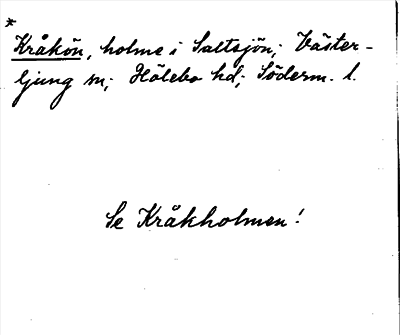 *
Kråkön, holme i Saltsjön; Väster-
ljung sn; Hölebo hd; Söderm. l.
Se Kråkholmen!